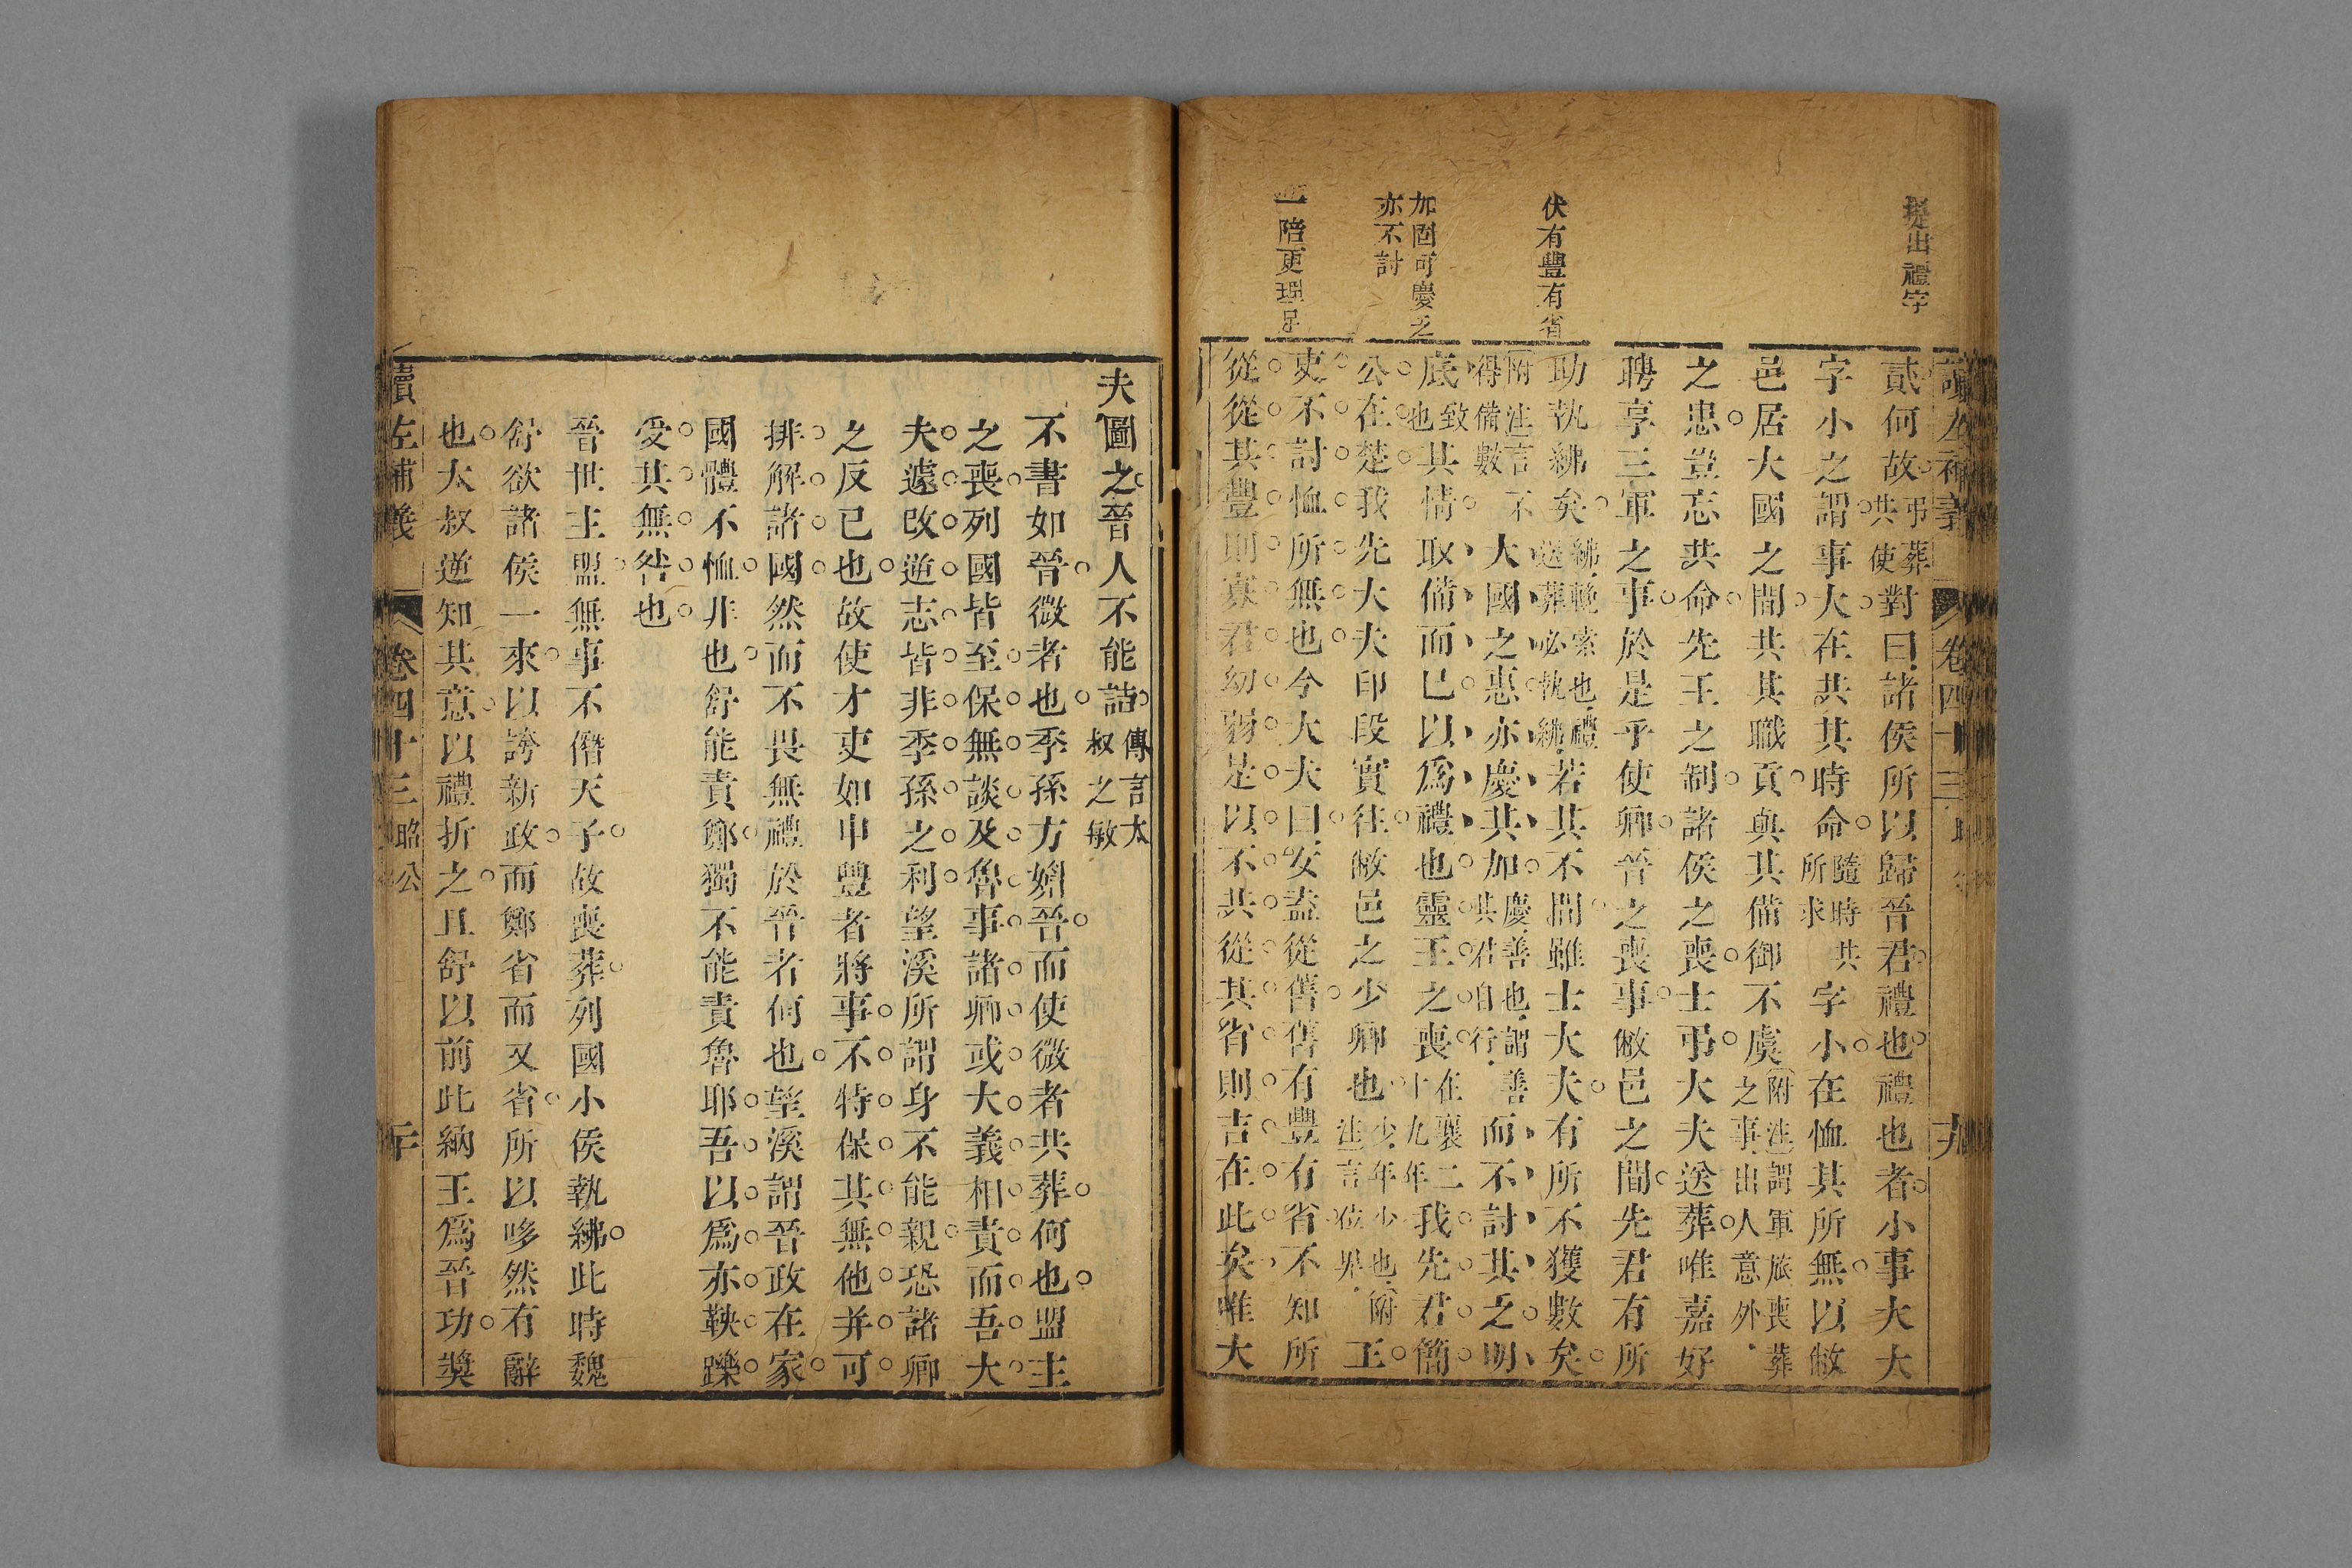 提出禮字
伏有豐有省
加固可慶之
亦不討
一陪更理足
卷四十三
貳何故弔葬共使對曰諸侯所以歸晉君禮也禮也者小事大大
字小之謂事大在共其時命隨時共所求字小在恤其所無以敝
邑居大國之閒共其職貢與其備御不虞附注謂軍旅喪葬之事出人意外
之忠豈忘共命先王之制諸侯之喪士弔大夫送葬唯嘉好
聘享三軍之事於是乎使卿晉之喪事敝邑之閒先君有所
助執紼矣紼輓索也禮送葬必執紼若其不閒雖士大夫有所不獲數矣
附注言不得備數大國之惠亦慶其加慶善也謂善共君自行而不討其乏明
底致也其情取備而已以爲禮也靈王之喪在襄二十九年我先君簡
公在楚我先大夫印段實往敝邑之少卿也少年少也附注言位卑王
吏不討恤所無也今大夫曰女盍從舊舊有豐有省不知所
從從其豐則寡君幼弱是以不共從其省則吉在此矣唯大
夫圖之晉人不能詰傳言大叔之敏
不書如晉微者也季孫方媚晉而使微者共葬何也盟主
之喪列國皆至保無談及魯事諸卿或大義相責而吾大
夫遽改逆志皆非季孫之利望溪所謂身不能親恐諸卿
之反已也故使才吏如申豐者將事不特保其無他并可
排解諸國然而不畏無禮於晉者何也望溪謂晉政在家
國體不恤非也舒能責鄭獨不能責魯耶吾以爲亦鞅躒
受其無咎也
晉世主盟無事不僭天子故喪葬列國小侯執紼此時魏
舒欲諸侯一來以誇新政而鄭省而又省所以哆然有辭
也大叔逆知其意以禮折之且舒以前此納王爲晉功獎
讀左補義
卷四十三
昭公
二十